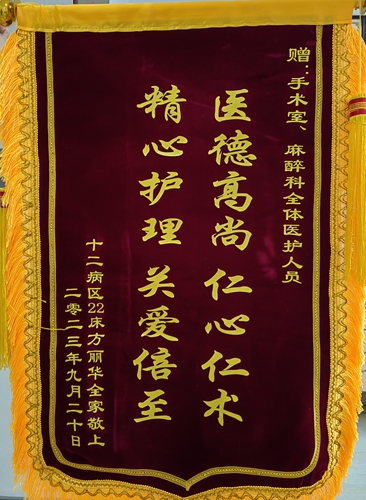 赠：手术室、麻醉科全体医护人员
医德高尚 仁心仁术
精心护理 关爱倍至
十二病区22床方丽华全家敬上
二零二三年九月二十日